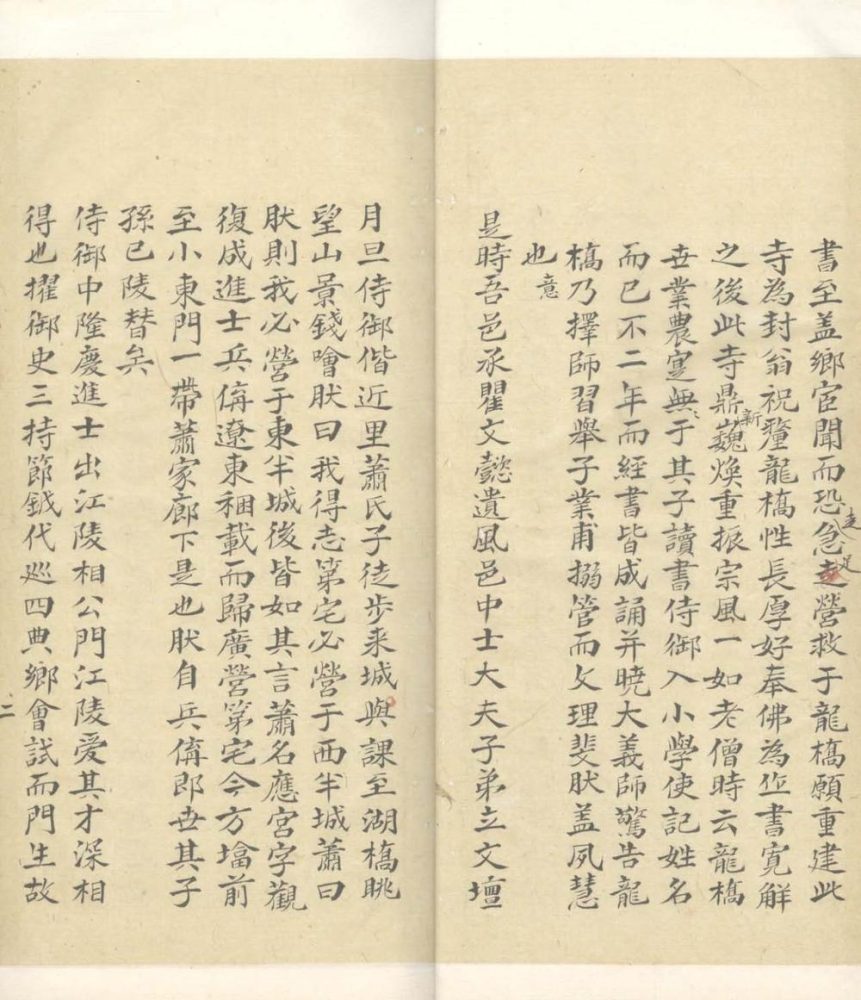 書至盖鄉宦聞而恐急走營救于龍橋願重建此
走
寺為封翁祝釐龍橋性長厚好奉佛為作書寬解
之後此寺鼎巍煥重振宗風一如老僧時云龍橋
新
世業農寔無于其子讀書侍御入小學使記姓名
而已不二年而經書皆成誦并曉大義師驚告龍
橋乃擇師習舉子業甫搦管而文理斐肰盖夙慧
也
意
是時吾邑承瞿文懿遺風邑中士大夫子弟立文壇
月旦侍御偕近里蕭氏子徒步来城與課至湖橋眺
望山景錢噲肰曰我得志第宅必營于西半城蕭曰
肰則我必營于東半城後皆如其言蕭名應宮字觀
復成進士兵備遼東稛載而歸廣營第宅今方墖前
至小東門一帶蕭家廊下是也肰自兵備郎世其子
孫已陵替矣
侍御中隆慶進士出江陵相公門江陵爱其才深相
得也擢御史三持節鉞代廵四典鄉會試而門生故
二